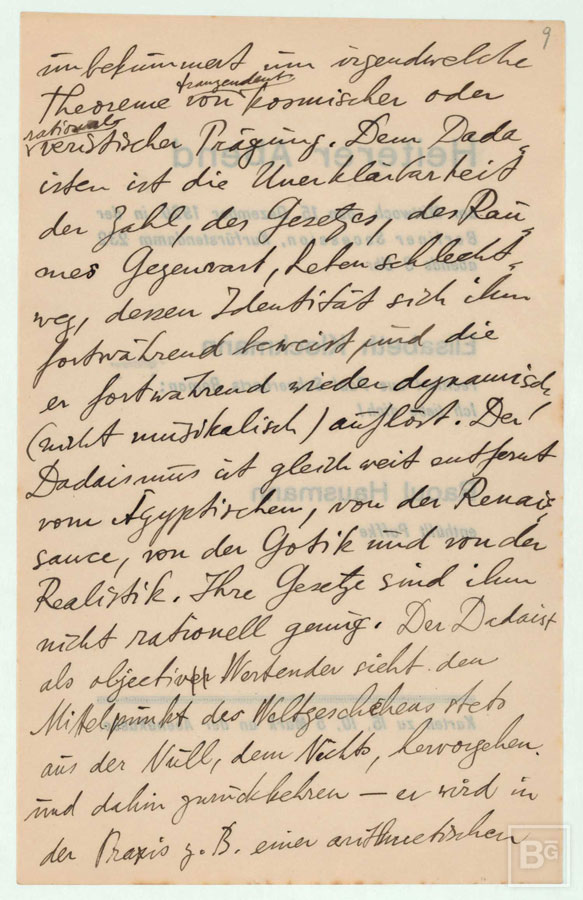 9
unbekümmert um irgendwelche
tranzendent
Theoreme von kosmischer oder
rational
veristischer Prägung. Dem Dada-
isten ist die Unerklärbarkeit
der Zahl, des Gesetzes, des Rau-
mes Gegenwart, Leben schlecht-
weg, dessen Identität sich ihm
fortwährend beweist und die
er fortwährend wieder dynamisch
(nicht musikalisch) auflöst. Der
Dadaismus ist gleich weit entfernt
vom Ägyptischen, von der Renais-
sance, von der Gotik und von der
Realistik. Ihre Gesetze sind ihm
nicht rationell genug. Der Dadaist
als objectiv Wertender sieht den
Mittelpunkt des Weltgeschehens stets
aus der Null, dem Nichts, hervorgehen
und dahin zurückkehren — er wird in
der Praxis z.B. einer arithmetischen
BG